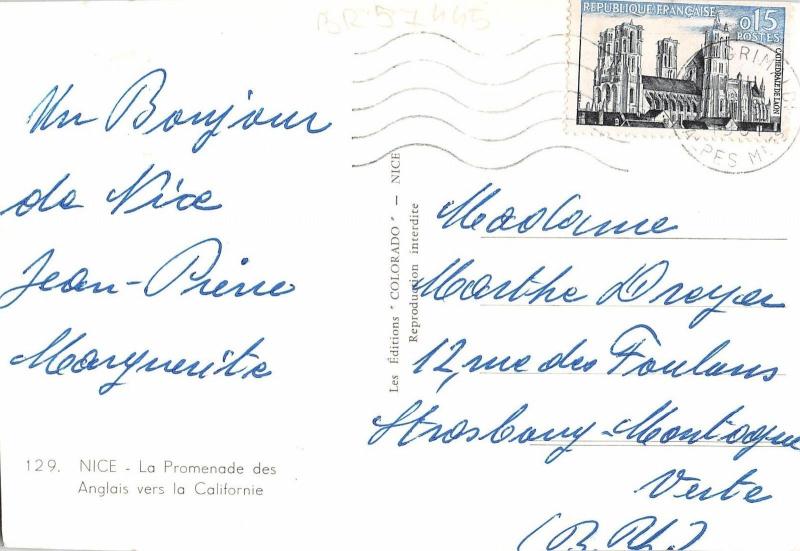 BR 57445
RÉPUBLIQUE FRANÇAISE
0,15
POSTES
CATHÉDRALE DE LAON
ALPES MMES
Un Bonjour
de Nice
Jean-Pierre
Marguerite
129. NICE - La Promenade des
Anglais vers la Californie
Les Éditions "COLORADO" - NICE
Reproduction interdite
Madame
Marthe Dreyer
12, rue des Foulons
Strasbourg-Montagne
Verte
(B.Rh.)